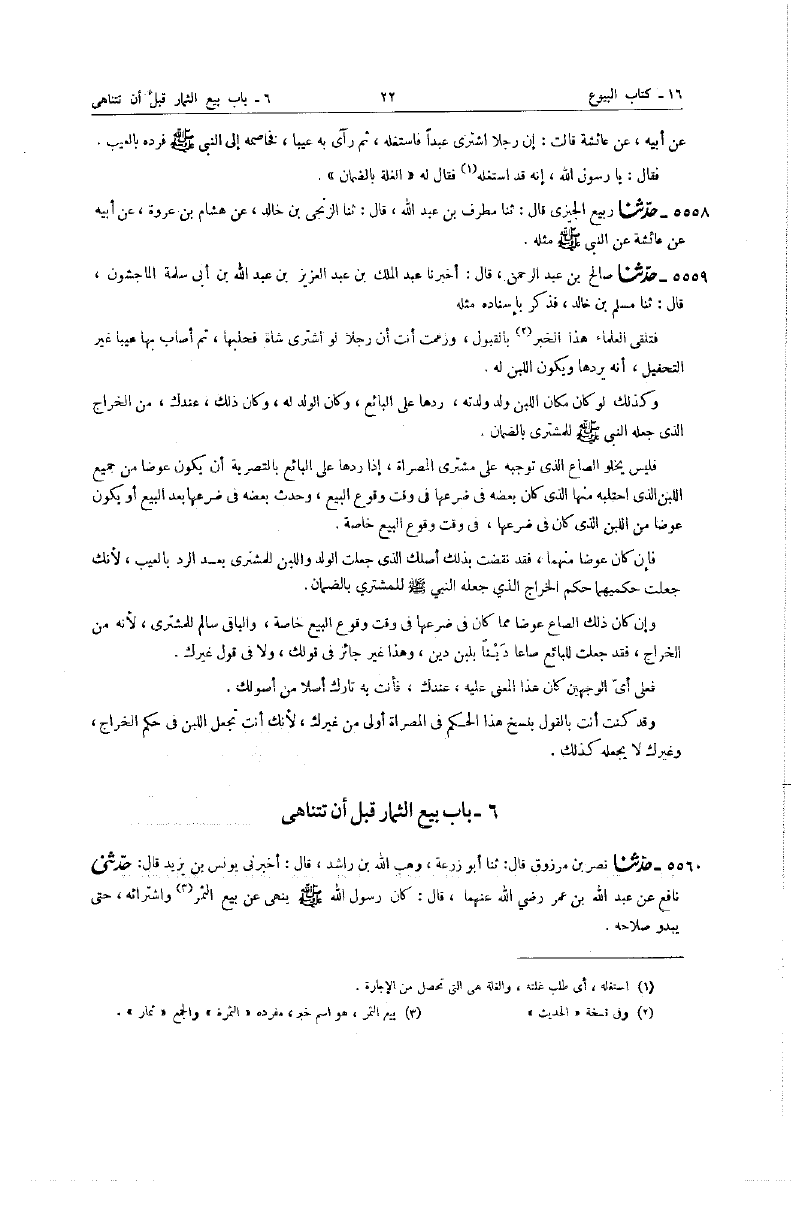 ١٦ - كتاب البيوع ٢٢ ٦ - باب بيع الثمار قبل أن تتناهى
عن أبيه ، عن عائشة قالت : إن رجلا اشترى عبداً فاستغله ، ثم رأى به عيبا ، فخاصمه إلى النبي ﷺ فرده بالعيب .
فقال : يا رسول الله ، إنه قد استغله(١) فقال له « الغلة بالضمان » .
٥٥٥٨ - حدّثنا ربيع الجيزى قال : ثنا مطرف بن عبد الله ، قال : ثنا الزنجى بن خالد ، عن هشام بن عروة ، عن أبيه
عن عائشة عن النبي ﷺ مثله .
٥٥٥٩ - حدّثنا صالح بن عبد الرحمن ، قال : أخبرنا عبد الملك بن عبد العزيز بن عبد الله بن أبى سلمة الماجشون ،
قال : ثنا مسلم بن خالد ، فذكر بإسناده مثله
فتلقى العلماء هذا الخبر(٢) بالقبول ، وزعمت أنت أن رجلا لو اشترى شاة فحلبها ، ثم أصاب بها عيبا غير
التحفيل ، أنه يردها ويكون اللبن له .
وكذلك لو كان مكان اللبن ولد ولدته ، ردها على البائع ، وكان الولد له ، وكان ذلك ، عندك ، من الخراج
الذى جعله النبي ﷺ للمشترى بالضمان .
فليس يخلو الصاع الذى توجبه على مشترى المصراة ، إذا ردها على البائع بالتصرية أن يكون عوضا من جميع
اللبن الذى احتلبه منها الذى كان بعضه فى ضرعها فى وقت وقوع البيع ، وحدث بعضه فى ضرعها بعد البيع أو يكون
عوضا من اللبن الذى كان فى ضرعها ، فى وقت وقوع البيع خاصة .
فإن كان عوضا منهما ، فقد نقضت بذلك أصلك الذى جعلت الولد واللبن للمشترى بعد الرد بالعيب ، لأنك
جعلت حكميهما حكم الخراج الذي جعله النبي ﷺ للمشتري بالضمان .
وإن كان ذلك الصاع عوضا مما كان فى ضرعها فى وقت وقوع البيع خاصة ، والباقى سالم للمشترى ، لأنه من
الخراج ، فقد جعلت للبائع صاعا دَيْناً بلبن دين ، وهذا غير جائز فى قولك ، ولا فى قول غيرك .
فعلى أىّ الوجهين كان هذا المعنى عليه ، عندك ، فأنت به تارك أصلا من أصولك .
وقد كنت أنت بالقول بنسخ هذا الحكم فى المصراة أولى من غيرك ، لأنك أنت تجعل اللبن فى حكم الخراج ،
وغيرك لا يجعله كذلك .
٦ - باب بيع الثمار قبل أن تتناهى
٥٥٦٠ - حدّثنا نصر بن مرزوق قال: ثنا أبو زرعة ، وهب الله بن راشد ، قال : أخبرنى يونس بن يزيد قال: حدّثنى
نافع عن عبد الله بن عمر رضي الله عنهما ، قال : كان رسول الله ﷺ ينهى عن بيع الثمر(٣) واشترائه ، حتى
يبدو صلاحه .
(١) استغله ، أى طلب غلته ، والغلة هى التى تحصل من الإجارة .
(٢) وفى نسخة « الحديث » (٣) بيع الثمر ، هو اسم خبر ، مفرده « الثمرة » والجمع « ثمار » .